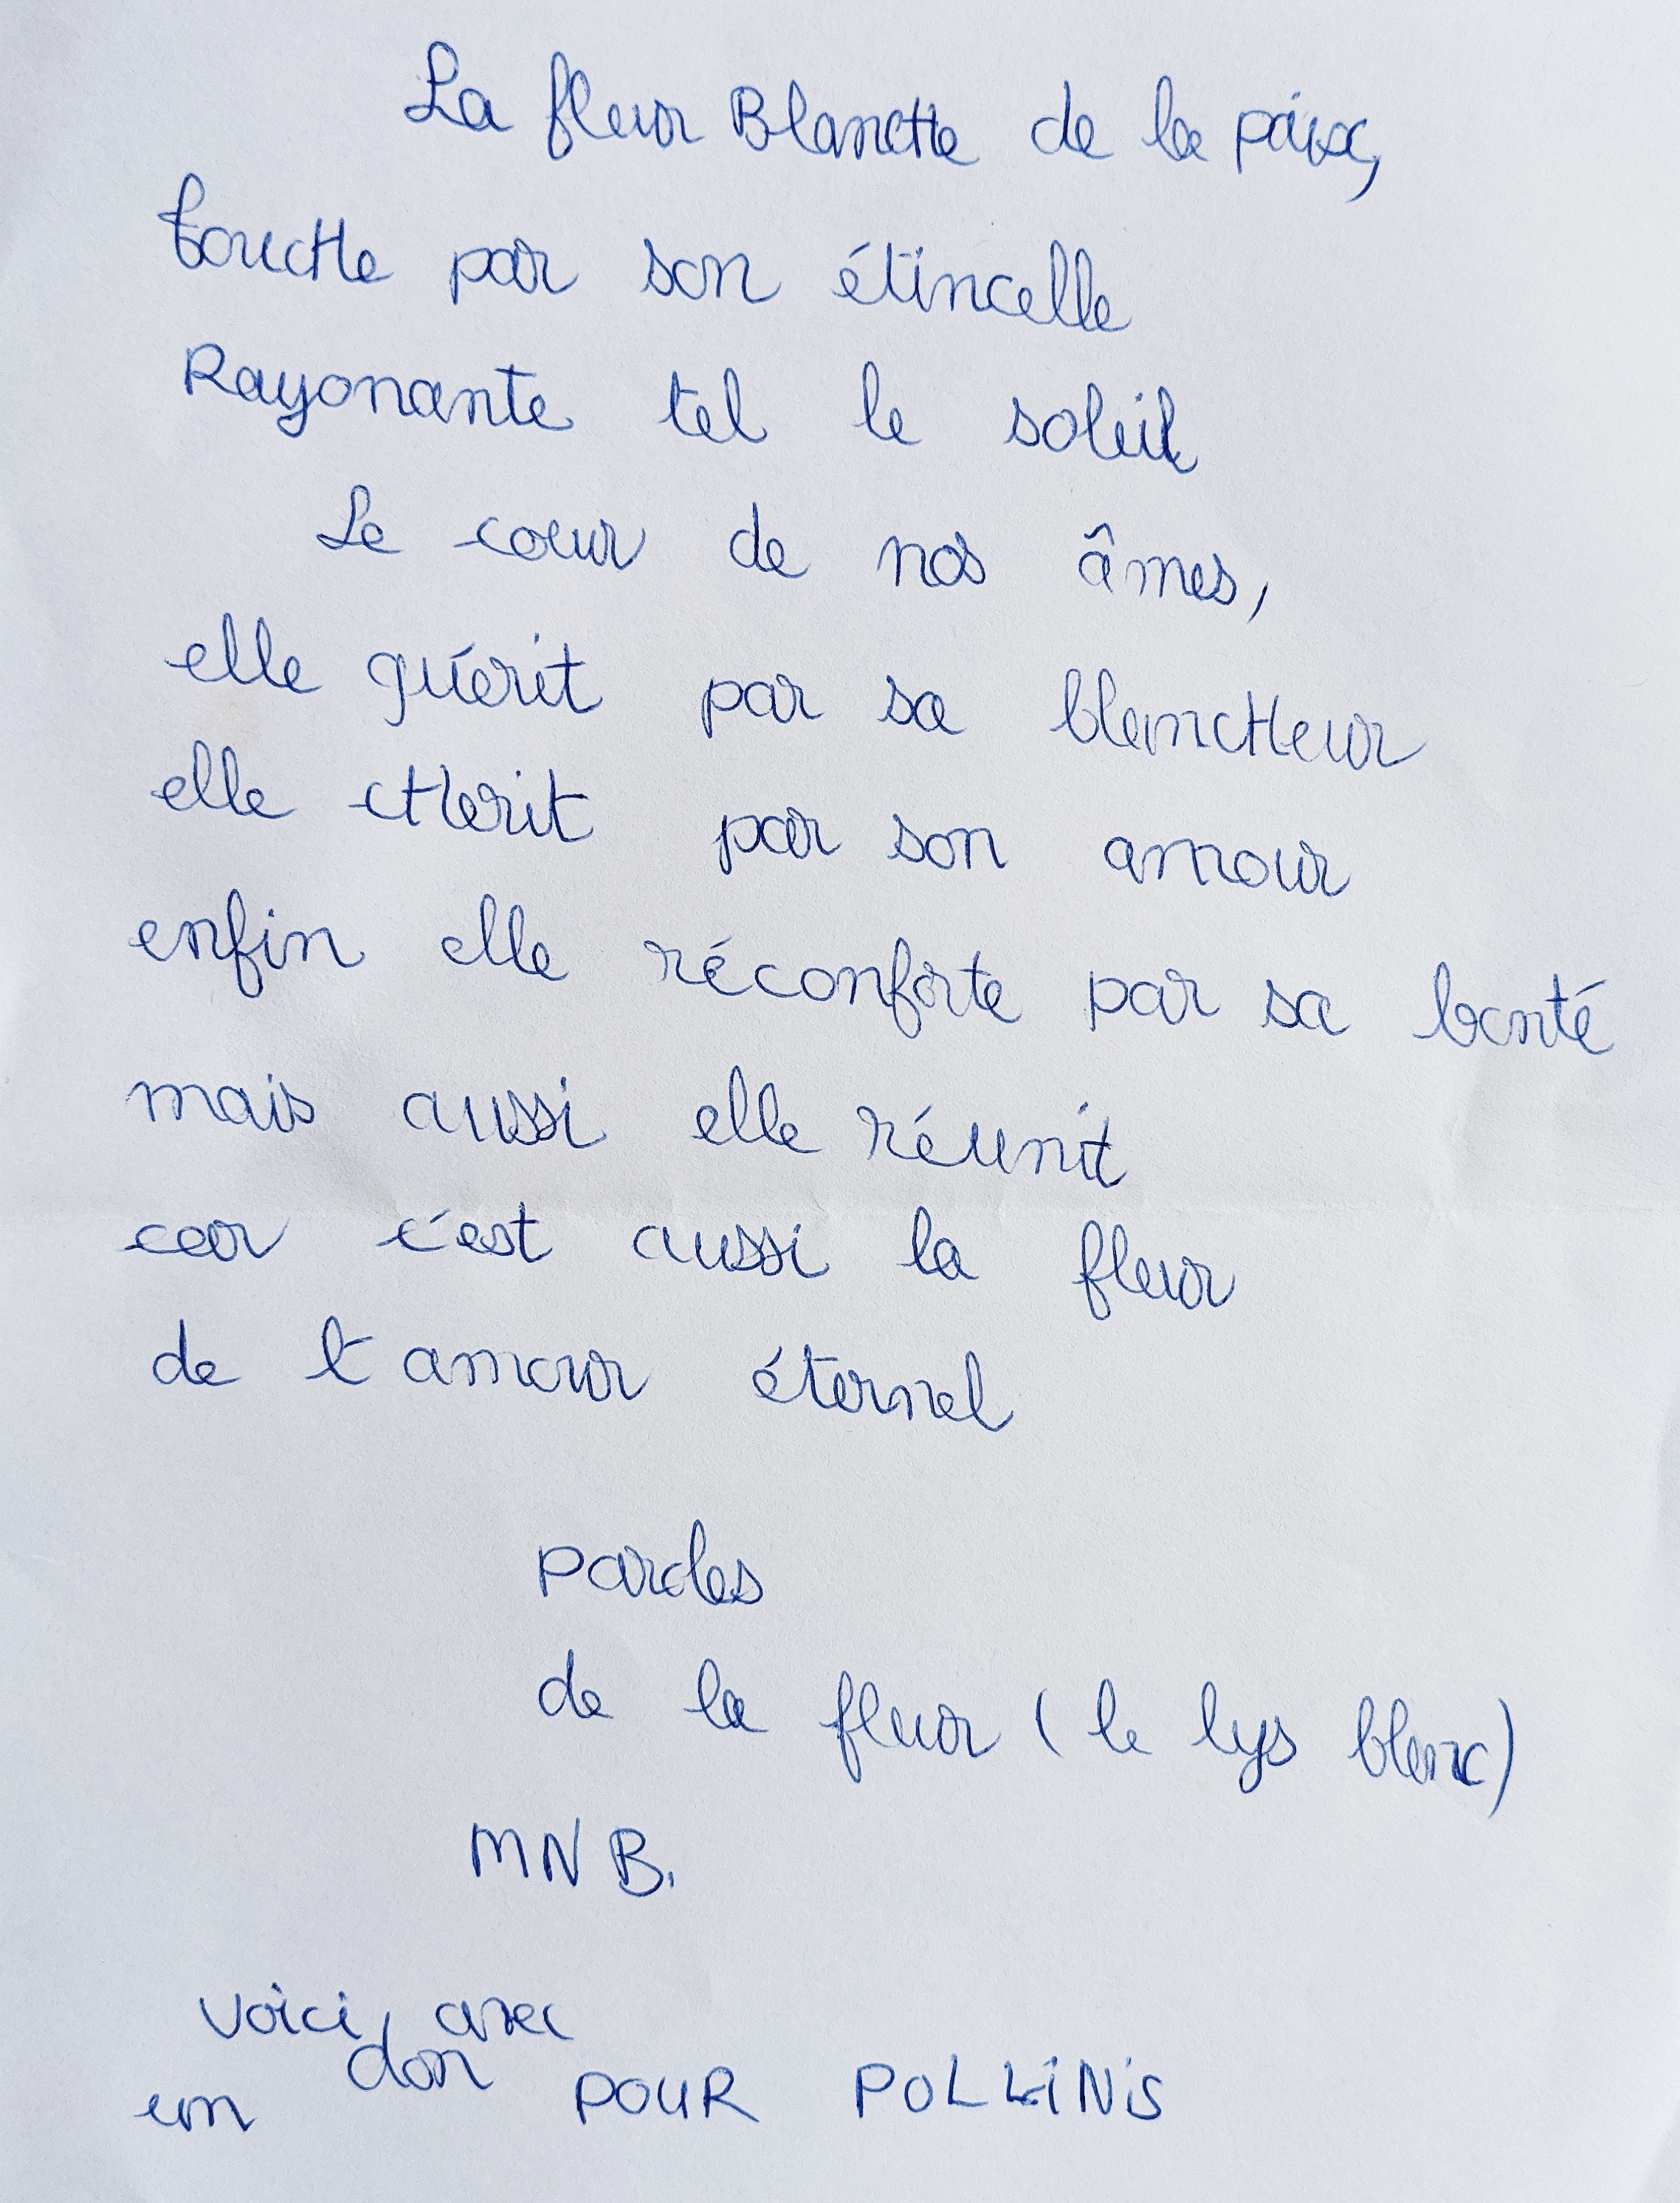 La fleur BlancHe de la paix,
toucHe par son étincelle
Rayonante tel le soleil
Le coeur de nos âmes,
elle guérit par sa blancHeur
elle cHerit par son amour
enfin elle réconforte par sa bonté
mais aussi elle réunit
car c'est aussi la fleur
de l'amour éternel
Paroles
de la fleur (le lys blanc)
MNB.
Voici, avec
un don POUR POLLiNiS